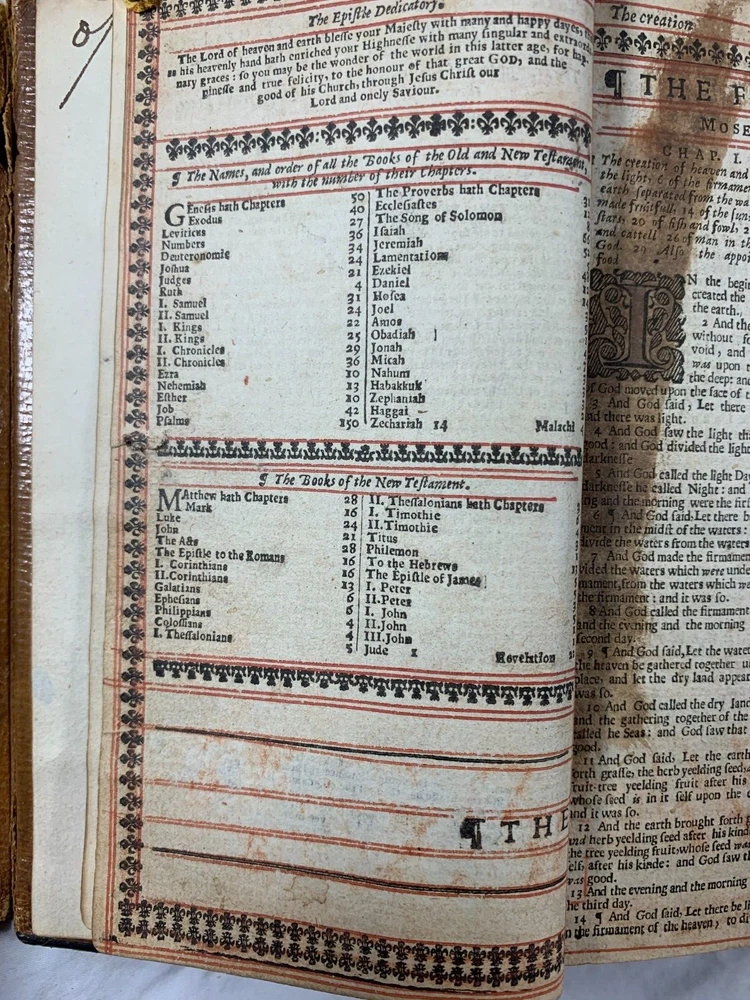 The Epistle Dedicatory.
The Lord of heaven and earth blesse your Majesty with many and happy dayes,
as his heavenly hand hath enriched your Highnesse with many singular and
nary graces: so you may be the wonder of the world in this latter age, for
pinesse and true felicity, to the honour of that great GOD, and the
good of his Church, through Jesus Christ our
Lord and onely Saviour.
¶ The Names, and order of all the Books of the Old and New Testament,
with the number of their Chapters.
GEnesis hath Chapters 50
Exodus 40
Leviticus 27
Numbers 36
Deuteronomie 34
Joshua 24
Judges 21
Ruth 4
I. Samuel 31
II. Samuel 24
I. Kings 22
II. Kings 25
I. Chronicles 29
II. Chronicles 36
Ezra 10
Nehemiah 13
Esther 10
Job 42
Psalms 150
The Proverbs hath Chapters
Ecclesiastes
The Song of Solomon
Isaiah
Jeremiah
Lamentations
Ezekiel
Daniel
Hosea
Joel
Amos
Obadiah
Jonah
Micah
Nahum
Habakkuk
Zephaniah
Haggai
Zechariah 14 Malachi 4
¶ The Books of the New Testament.
MAtthew hath Chapters 28
Mark 16
Luke 24
John 21
The Acts 28
The Epistle to the Romans 16
I. Corinthians 16
II. Corinthians 13
Galatians 6
Ephesians 6
Philippians 4
Colossians 4
I. Thessalonians 5
II. Thessalonians hath Chapters
I. Timothie
II. Timothie
Titus
Philemon
To the Hebrews
The Epistle of James
I. Peter
II. Peter
I. John
II. John
III. John
Jude 1 Revelation
¶ THE
The creation
¶ THE F
MOSE
CHAP. I.
The creation of heaven and
the light, 6 of the firmamen
earth separated from the wa
made fruitfull, 14 of the sun
stars, 20 of fish and fowl, 2
and cattell, 26 of man in th
God. 29 Also the appoi
food
IN the begin
created the
the earth.
2 And the
without fo
void, and
was upon t
the deep: and
of God moved upon the face of t
3 And God said, Let there
and there was light.
4 And God saw the light th
good: and God divided the light
darknesse
5 And God called the light Day
darknesse he called Night: and
ing and the morning were the firs
6 ¶ And God said, Let there b
ment in the midst of the waters:
divide the waters from the waters
7 And God made the firmamen
vided the waters which were unde
mament, from the waters which we
the firmament: and it was so.
8 And God called the firmament
and the evening and the morning
second day.
9 ¶ And God said, Let the water
the heaven be gathered together u
place, and let the dry land appear
was so.
10 And God called the dry land
and the gathering together of the
called he Seas: and God saw that
good.
11 And God said, Let the earth
forth grasse, the herb yeelding seed,
fruit-tree yeelding fruit after his
whose seed is in it self upon the
and it was so.
12 And the earth brought forth g
and herb yeelding seed after his kinde
the tree yeelding fruit, whose seed was
elf, after his kinde: and God saw th
was good.
13 And the evening and the morning
the third day.
14 ¶ And God said, Let there be li
n the firmament of the heaven, to di